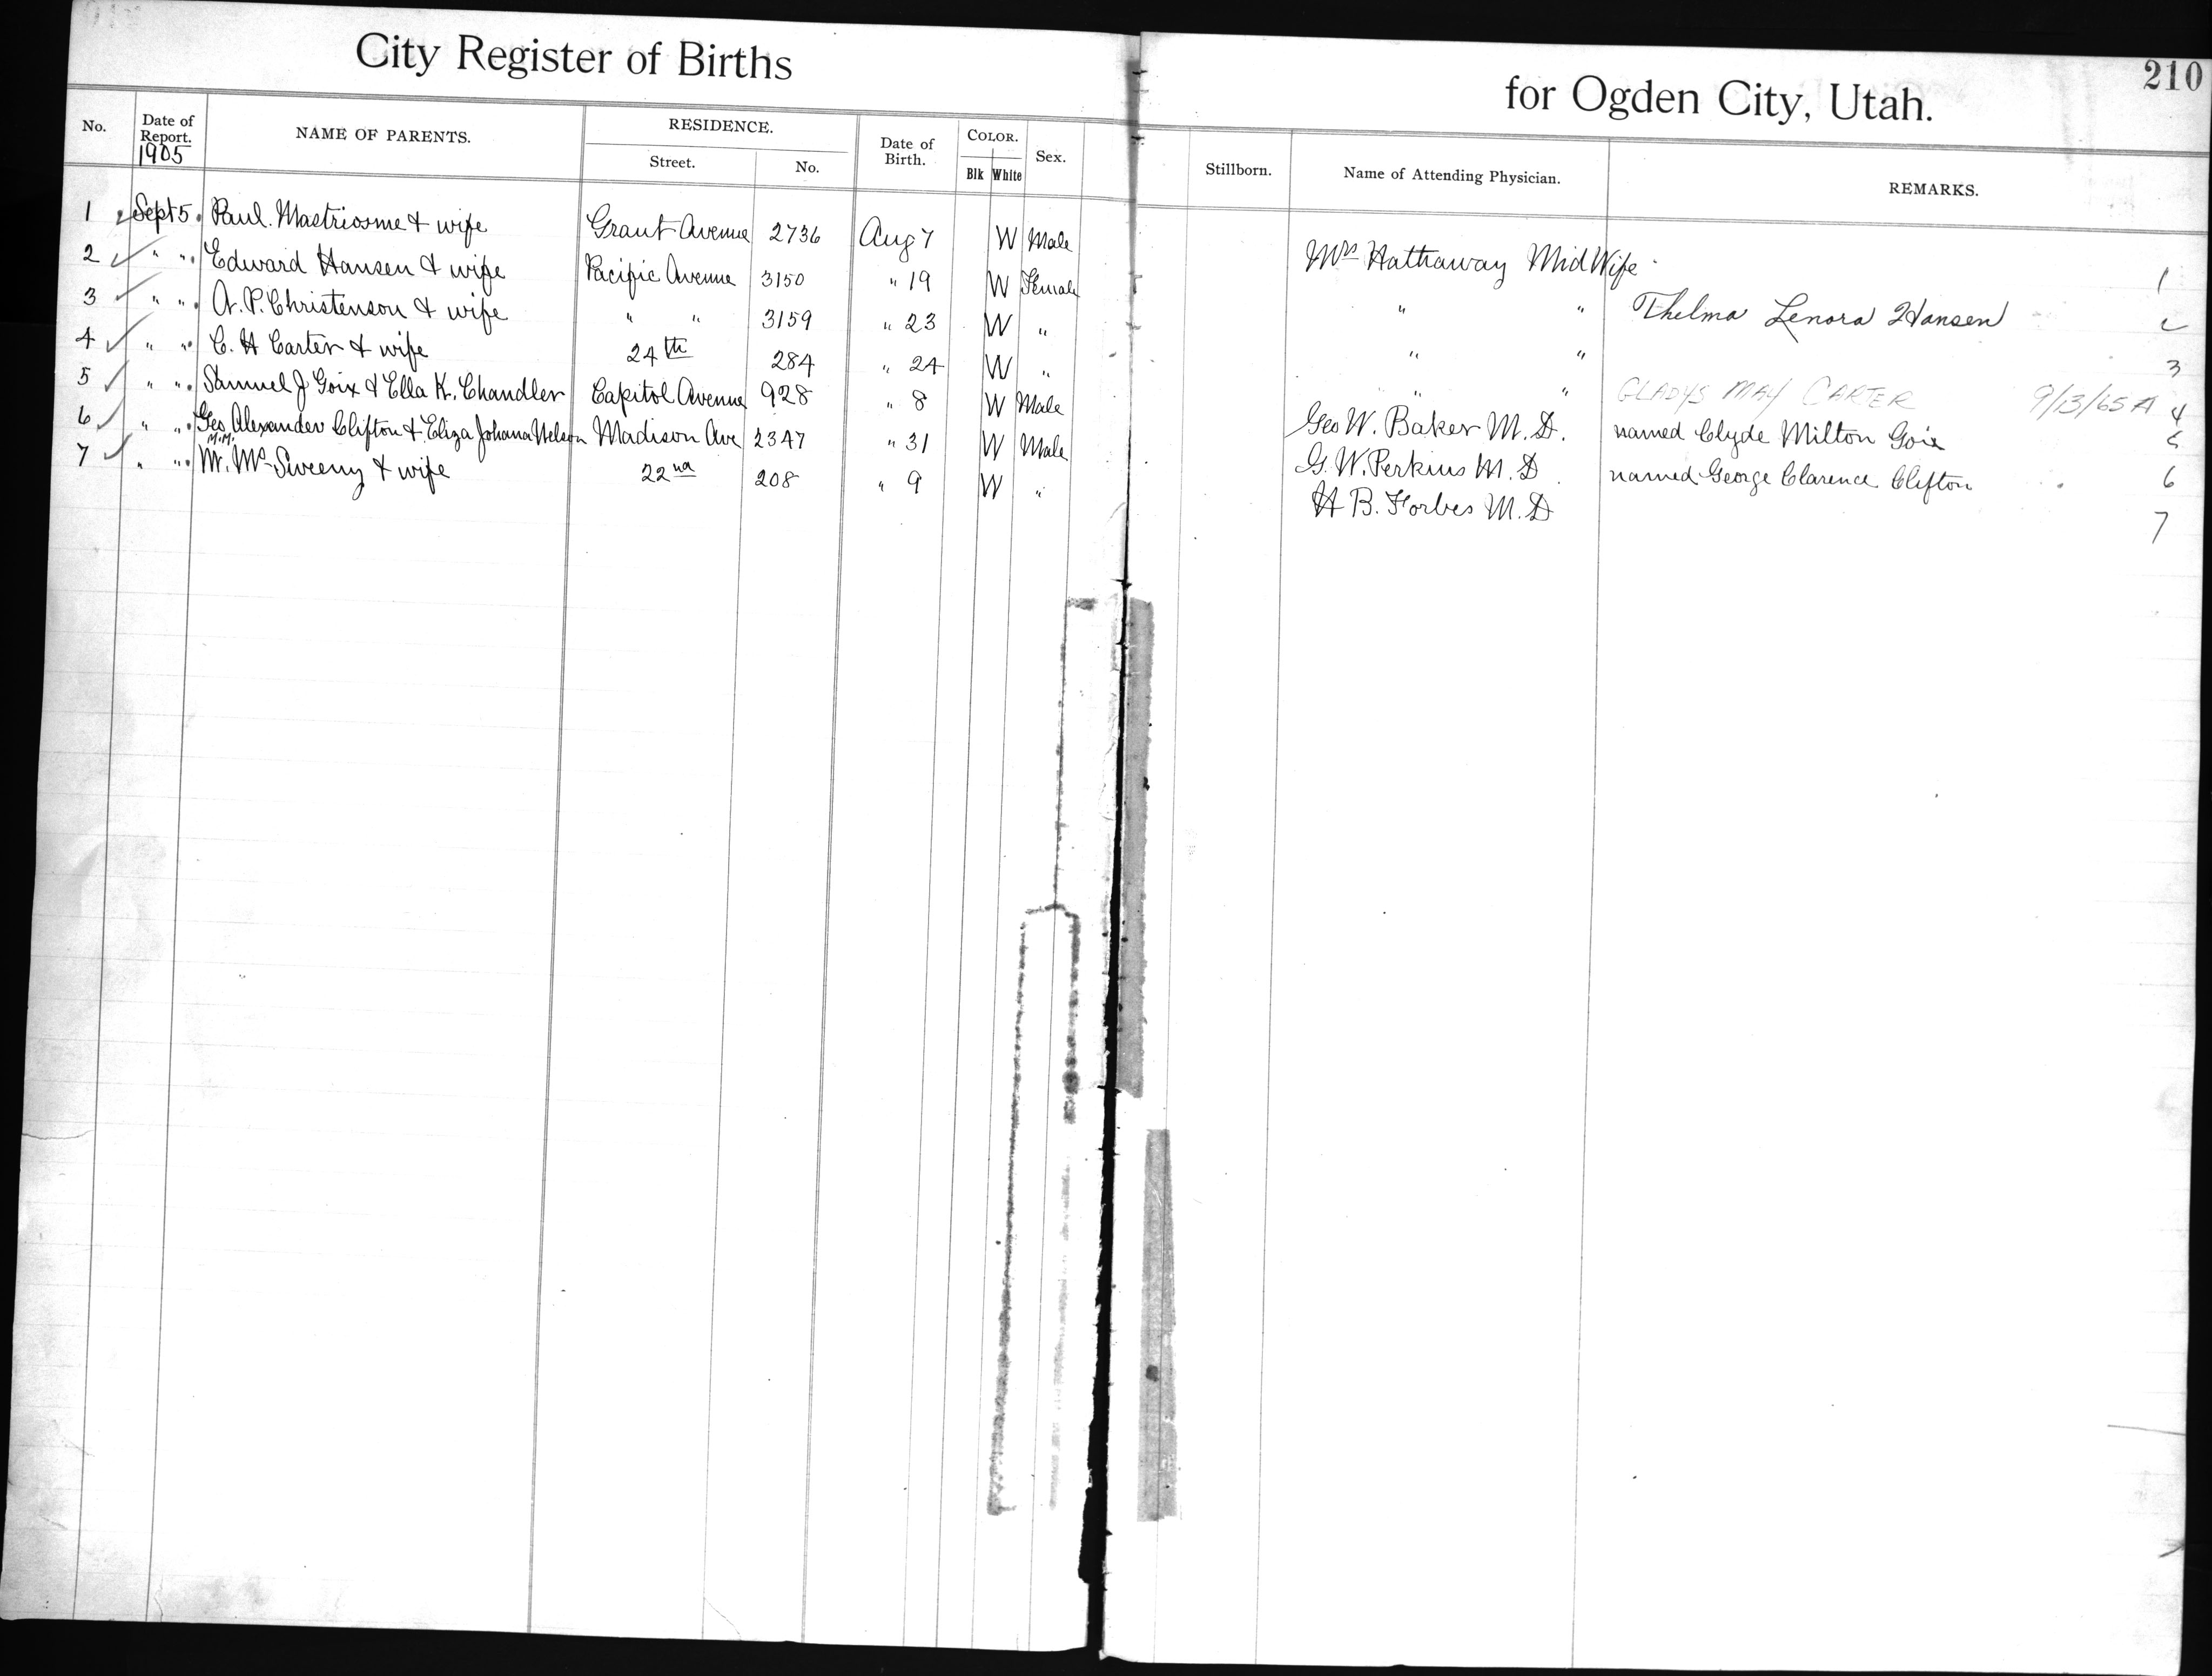 City Register of Births for Ogden City, Utah. 210
No. Date of Report. NAME OF PARENTS. RESIDENCE. Street. No. Date of Birth. COLOR. Blk White Sex. Stillborn. Name of Attending Physician. REMARKS.
1905
1 Sept 5. Paul. Mastriosme & wife Grant Avenue 2736 Aug 7 W Male Mrs Hathaway MidWife 1
2 " ". Edward Hansen & wife Pacific Avenue 3150 " 19 W Female " " Thelma Lenora Hansen 2
3 " ". A. P. Christenson & wife " " 3159 " 23 W " " " 3
4 " ". C. H Carter & wife 24th 284 " 24 W " " " GLADYS MAY CARTER 9/13/65 A 4
5 " ". Samuel J Goix & Ella K. Chandler Capitol Avenue 928 " 8 W Male Geo W. Baker M. D. named Clyde Milton Goix 5
6 " ". Geo. Alexander Clifton & Eliza Johana Nelson Madison Ave 2347 " 31 W Male G. W. Perkins M. D named George Clarence Clifton 6
M.M.
7 " ". Mr. Mc Sweeny & wife 22nd 208 " 9 W " H B. Forbes M. D 7